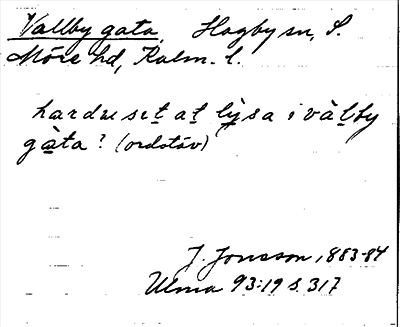 Vallby gata, Hagby sn, S.
Möre hd, Kalm. l.
hardu set at lysa i välby
gata? (ordstäv)
J. Jonsson, 1883-84
Ulma 93:19 s. 317